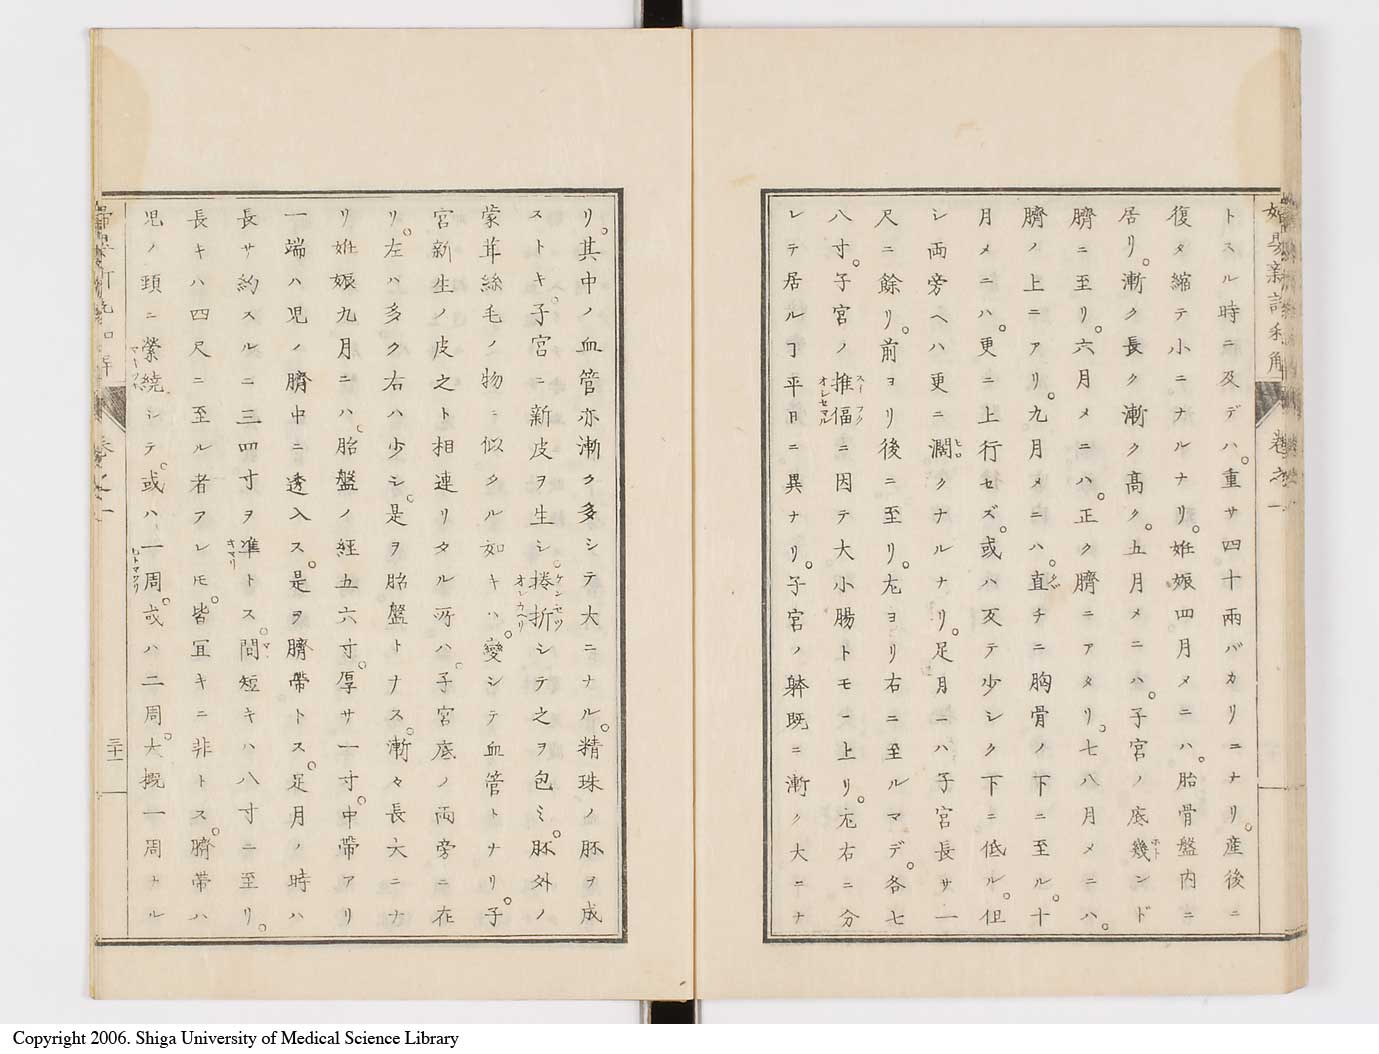 婦嬰新説和解 巻之一
トスル時ニ及デハ。重サ四十兩バカリニナリ。産後ニ
復タ縮テ小ニナルナリ。姙娠四月メニハ。胎骨盤内ニ
居リ。漸ク長ク漸ク髙ク。五月メニハ。子宮ノ底幾ンド
臍ニ至リ。六月メニハ。正ク臍ニアタリ。七八月メニハ。
臍ノ上ニアリ。九月メニハ。直チニ胸骨ノ下ニ至ル。十
月メニハ。更ニ上行セズ。或ハ反テ少シク下ニ低ル。但
シ両旁ヘハ更ニ濶クナルナリ。足月ニハ子宮長サ一
尺ニ餘リ。前ヨリ後ニ至リ。左ヨリ右ニ至ルマデ。各七
八寸。子宮ノ推偪ニ因テ大小腸トモニ上リ。左右ニ分
レテ居ル丁平日ニ異ナリ。子宮ノ躰既ニ漸ク大ニナ
リ。其中ノ血管亦漸ク多シテ大ニナル。精珠ノ胚ヲ成
ストキ。子宮ニ新皮ヲ生シ。捲折シテ之ヲ包ミ。胚外ノ
蒙茸絲毛ノ物ニ似クル如キハ。變シテ血管トナリ。子
宮新生ノ皮之ト相連リタル所ハ。子宮底ノ両旁ニ在
リ。左ハ多ク右ハ少シ。是ヲ胎盤トナス。漸々長大ニナ
リ姙娠九月ニハ。胎盤ノ経五六寸。厚サ一寸。中帶アリ
一端ハ児ノ臍中ニ透入ス。是ヲ臍帶トス。足月ノ時ハ
長サ約スルニ三四寸ヲ凖トス。間短キハ八寸ニ至リ。
長キハ四尺ニ至ル者アレモ。皆冝キニ非トス。臍帶ハ
児ノ頚ニ縈繞シテ。或ハ一周。或ハ二周。大概一周ナル
巻之一
三十一
Copyright 2006. Shiga University of Medical Science Library